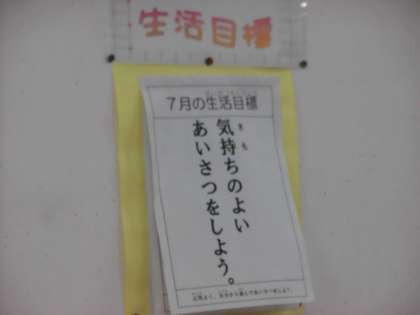 生活目標
7月の生活目標
気持ちのよい
あいさつをしよう。